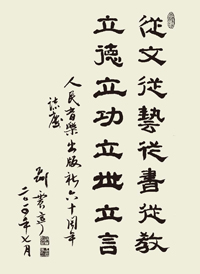 從文從藝從書從教
立德立功立世立言
人民音樂出版社六十周年
誌慶
年七月